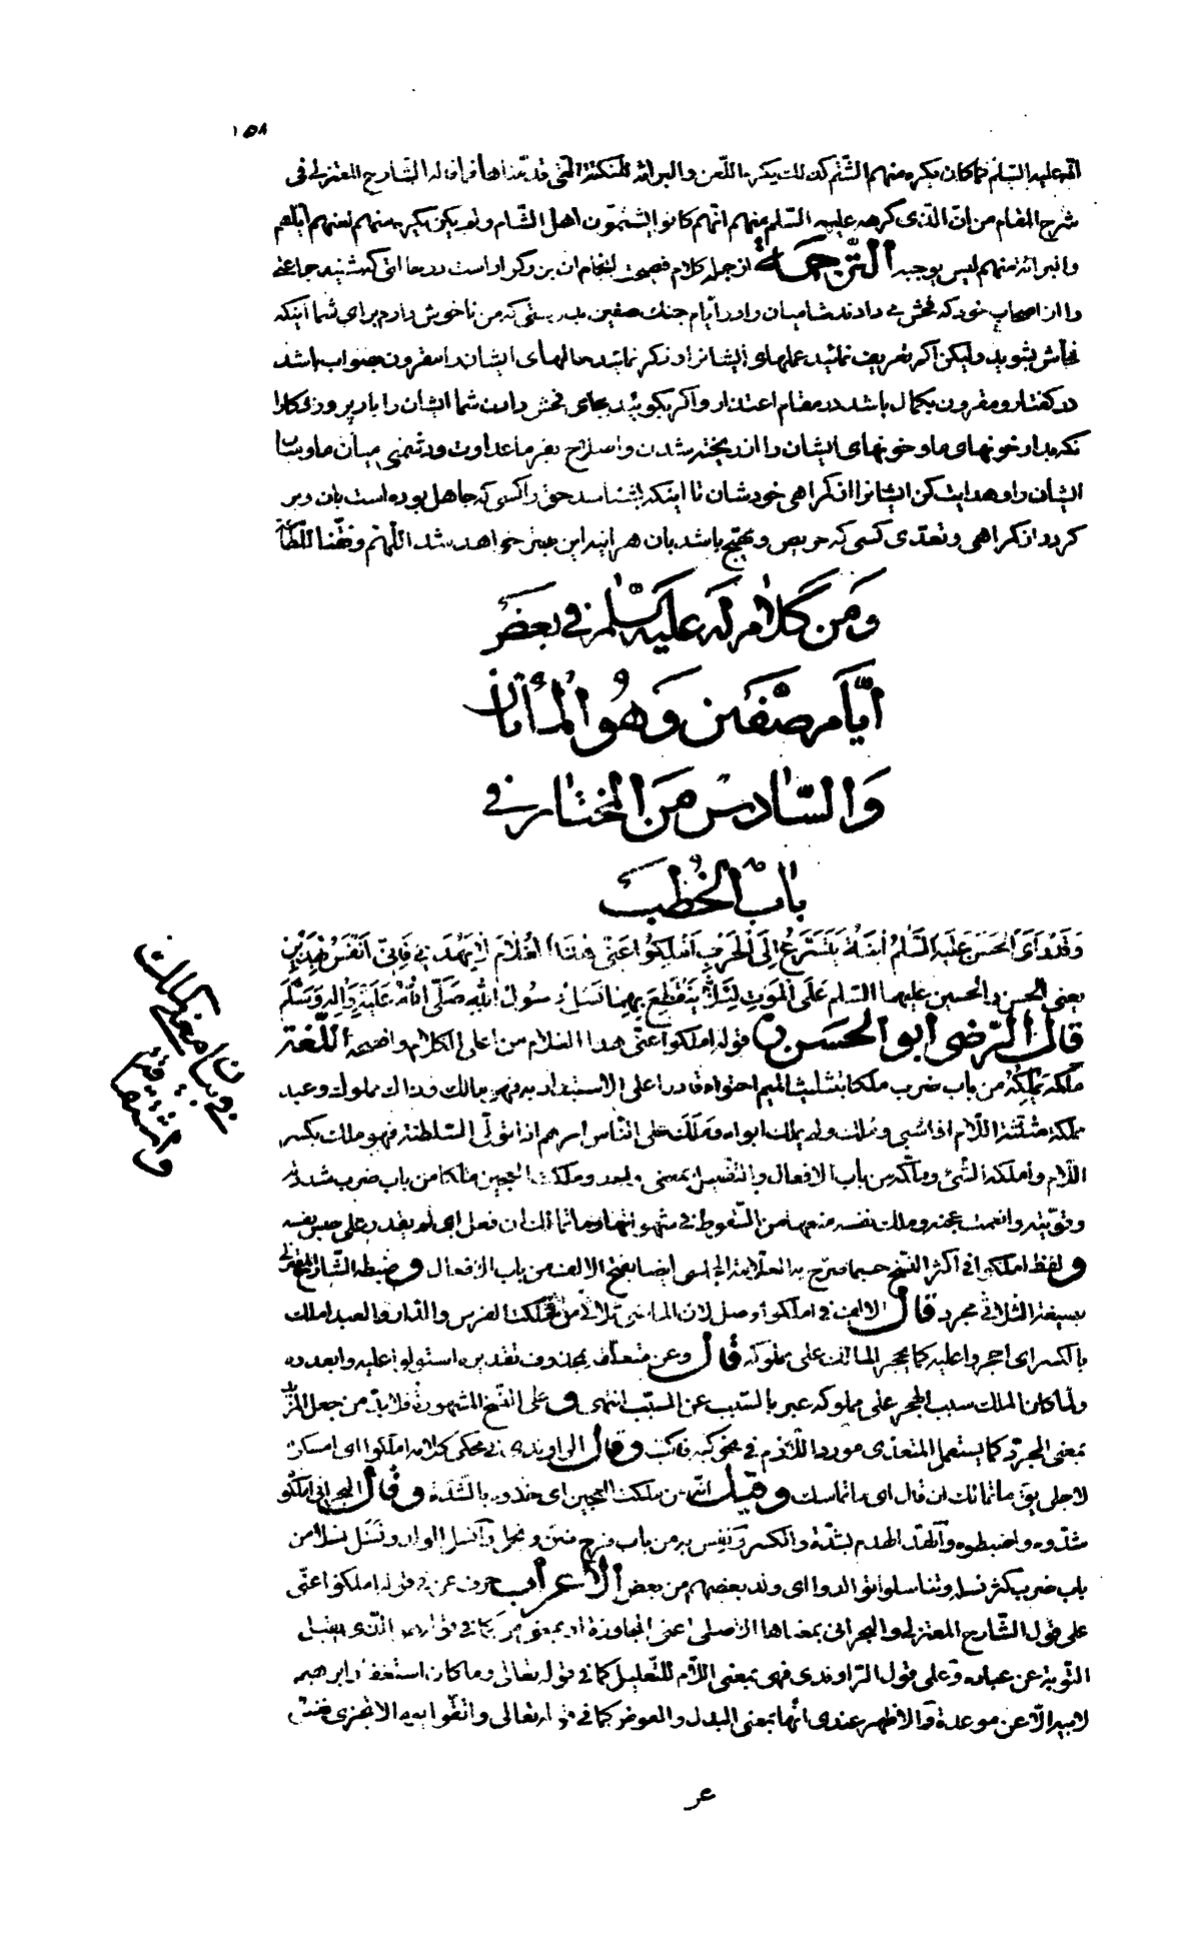 ١٥٨
انّه عليه السّلام كما كان يكره منهم الشّتم كذلك يكره اللّعن والبرائة للنكتة الّتي قدّمناها فما قاله الشّارح المعتزلي في
شرح المقام من انّ الّذي كرهه عليه السّلم منهم انّهم كانوا يشتمون اهل الشّام ولم يكن يكره منهم لعنهم ايّاهم
والبرائة منهم ليس بوجيه الترجمة از جمله كلام فصاحت نظام ان بزرگوار است در حالتى كه شنيد جماعتى
را از اصحاب خود كه فحش مى دادند شاميان را در ايّام جنك صفين بدرستى كه من ناخوش دارم براى شما اينكه
فحاش بشويد وليكن اكر تعريف نمائيد عملهاى ايشانرا و ذكر نمائيد حالهاى ايشان را مقرون بصواب باشد
در كفتار و مقرون بكمال باشد در مقام اعتذار و اكر بكوئيد بجاى فحش دادن شما ايشان را بار پروردكارا
نكه بدار خونهاى ما و خونهاى ايشان را از ريخته شدن و اصلاح بفرما عداوت ودشمنى ميان ما و ميان
ايشان را و هدايت كن ايشانرا از كمراهى خودشان تا اينكه بشناسد حق را كسى كه جاهل بوده است بان و بر
كردد از كمراهى و تعدّى كسى كه حريص و مهيّج باشد بان هر اينه اين بهتر خواهد شد اللّهم وفّقنا للطّاعة
ومن كلام له عليه السّلم في بعض
ايّام صفّين وهو المأتان
والسّادس من المختار في
باب الخطب
وقد رأى الحسن عليه السّلم ابنه يتسرّع إلى الحرب املكوا عنّي هذا الغلام لا يهدّني فإنّي انفس بهذين
يعنى الحسن والحسين عليهما السّلم على الموت لئلّا ينقطع بهما نسل رسول الله صلّى الله عليه واله وسلّم
قال الرّضى ابو الحسن قوله املكوا عنّي هذا الغلام من اعلى الكلام وافصحه اللّغة
ملكه يملكه من باب ضرب ملكا بتثليث الميم احتواه قادرا على الاستبداد به فهو مالك وذاك مملوك وعبد
مملكة مثلّثة اللّام اذا سُبي وملك ولم يملك ابواه وملك على النّاس امرهم اذا تولّى السّلطنة فهو ملك بكسر
اللّام واملكه الشّئ وملّكه من باب الافعال والتّفعيل بمعنى واحد وملكت العجين ملكا من باب ضرب شددته
وقوّيته وانعمت عجنه وملك نفسه منعها من السّقوط في شهواتها وما تمالك ان فعل اى لم يقدر على حبس نفسه
ولفظ املكوا في اكثر النّسخ حسبما صرّح به العلّامة المجلسى ايضا بفتح الالف من باب الافعال وضبطه الشّارح المعتزلي
بصيغة الثّلاثي مجرد قال الالف في املكوا وصل لانّ الماضي ثلاثي من ملكت الفرس والدّار والعبد املك
بالكسر اى احجروا عليه كما يحجر المالك على مملوكه قال وعن متعلّقة بمحذوف تقديره استولوا عليه وابعدوه
ولمّا كان الملك سبب الحجر على مملوكه عبر بالسّبب عن المسبّب انتهى وعلى النّسخ المشهورة فلا بدّ من جعل المزيد
بمعنى المجرّد كما يستعمل المتعدّى مورد اللّازم في نحو كبّه فاكبّ وقال الراوندى في محكى كلامه املكوا اى امسكوه
لاجلى يقال ما تمالك ان قال اى ما تماسك وقيل انّه من ملكت العجين اى خذوه بالشدّة وقال البحراني املكوا
شدّوه واضبطوه والهدّ الهدم بشدّة والكسر ونفس به من باب فرح ضنّ وبخل والنسل الولد ونسل نسلا من
باب ضرب كثر نسله وتناسلوا توالدوا اى ولد بعضهم من بعض الاعراب حرف عن في قوله املكوا عنّي
على قول الشّارح المعتزلي والبحراني بمعناها الاصلى اعنى المجاوزة او بمعنى من كما في قوله هو الّذى يقبل
التّوبة عن عباده وعلى قول الرّاوندى فهى بمعنى اللّام للتّعليل كما في قوله تعالى وما كان استغفار ابراهيم
لابيه الّا عن موعدة والاظهر عندى انّها بمعنى البدل والعوض كما في قوله تعالى واتّقوا يوما لا تجزى نفس
في بيان معنى كلامه
عن